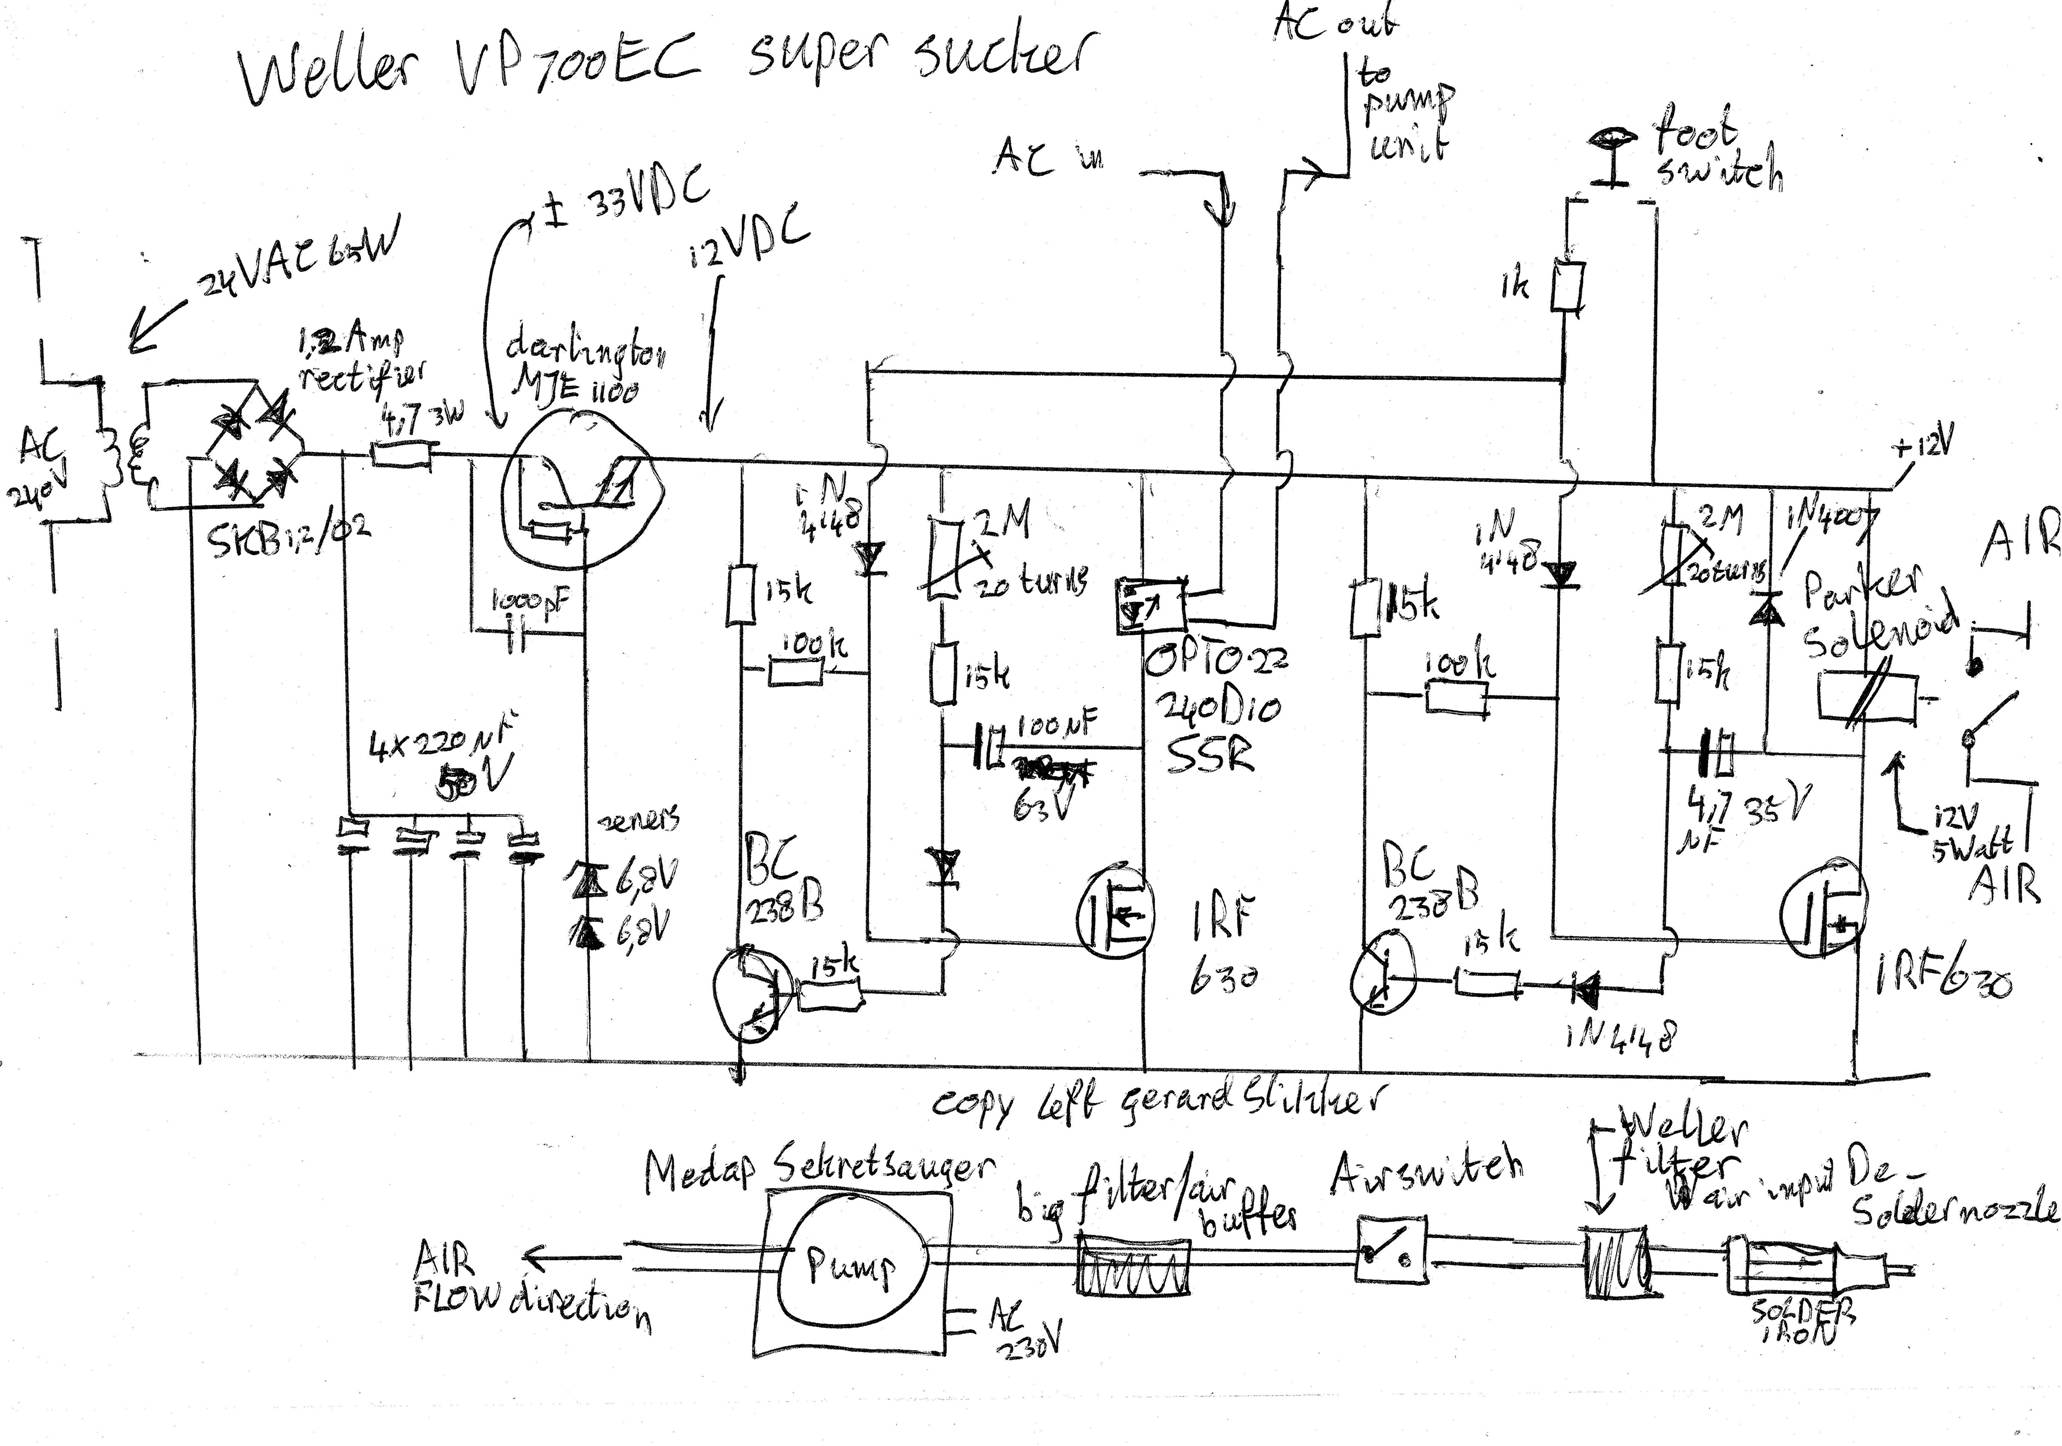 Weller VP700EC super sucker
AC out
to
pump
unit
AC in
foot
switch
± 33VDC
12VDC
24VAC 65W
1,2 Amp
rectifier
4,7 3W
darlington
MJE 1100
1k
AC
240V
SKB1,2/02
+12V
1N
4148
2M
20 turns
1N
4148
2M
20turns
1N4007
AIR
1000pF
15k
100k
15k
OPTO-22
240D10
SSR
15k
100k
15k
Parker
Solenoid
4x220µF
50V
100µF
63V
4,7 35V
µF
12V
5Watt
AIR
zeners
6,8V
6,8V
BC
238B
15k
IRF
630
BC
238B
15k
1N4148
IRF630
copy left gerard Slikker
Medap Sekretsauger
big filter/air
buffer
Airswitch
Weller
filter
air input De-
Soldernozzle
Pump
AIR
FLOW direction
AC
230V
SOLDER
IRON